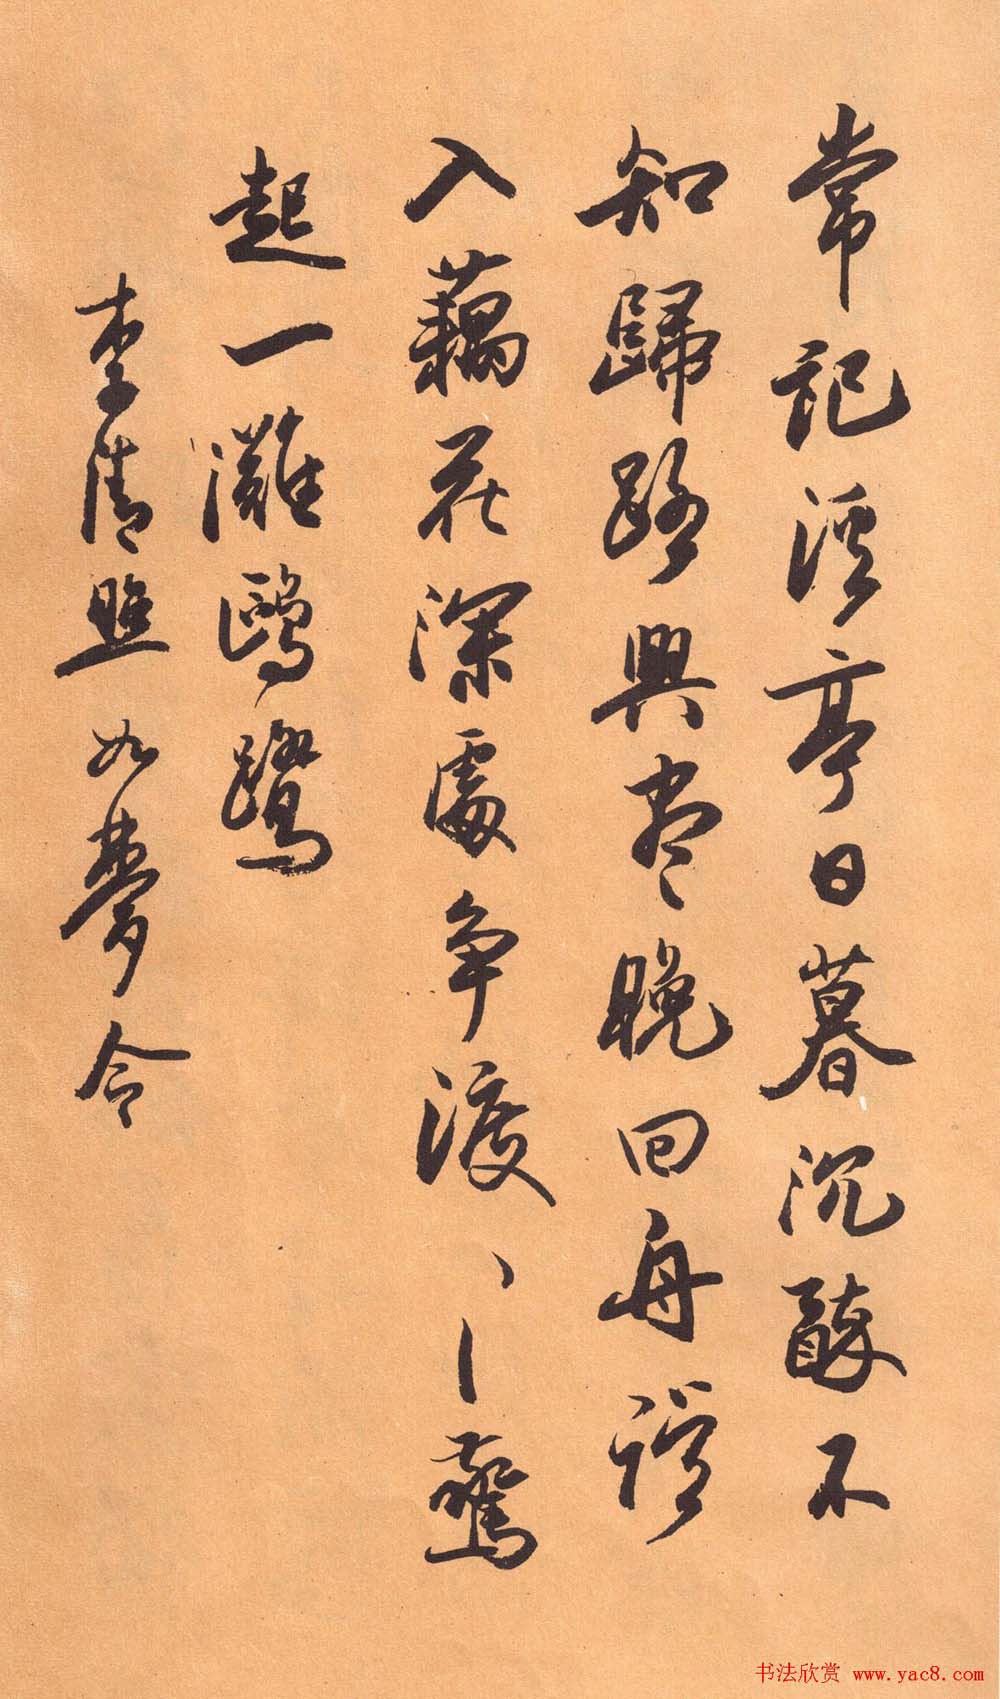 常記溪亭日暮沉醉不
知歸路興尽晚回舟誤
入藕花深處争渡丶丶驚
起一灘鷗鷺
李清照如夢令
书法欣赏 www.yac8.com